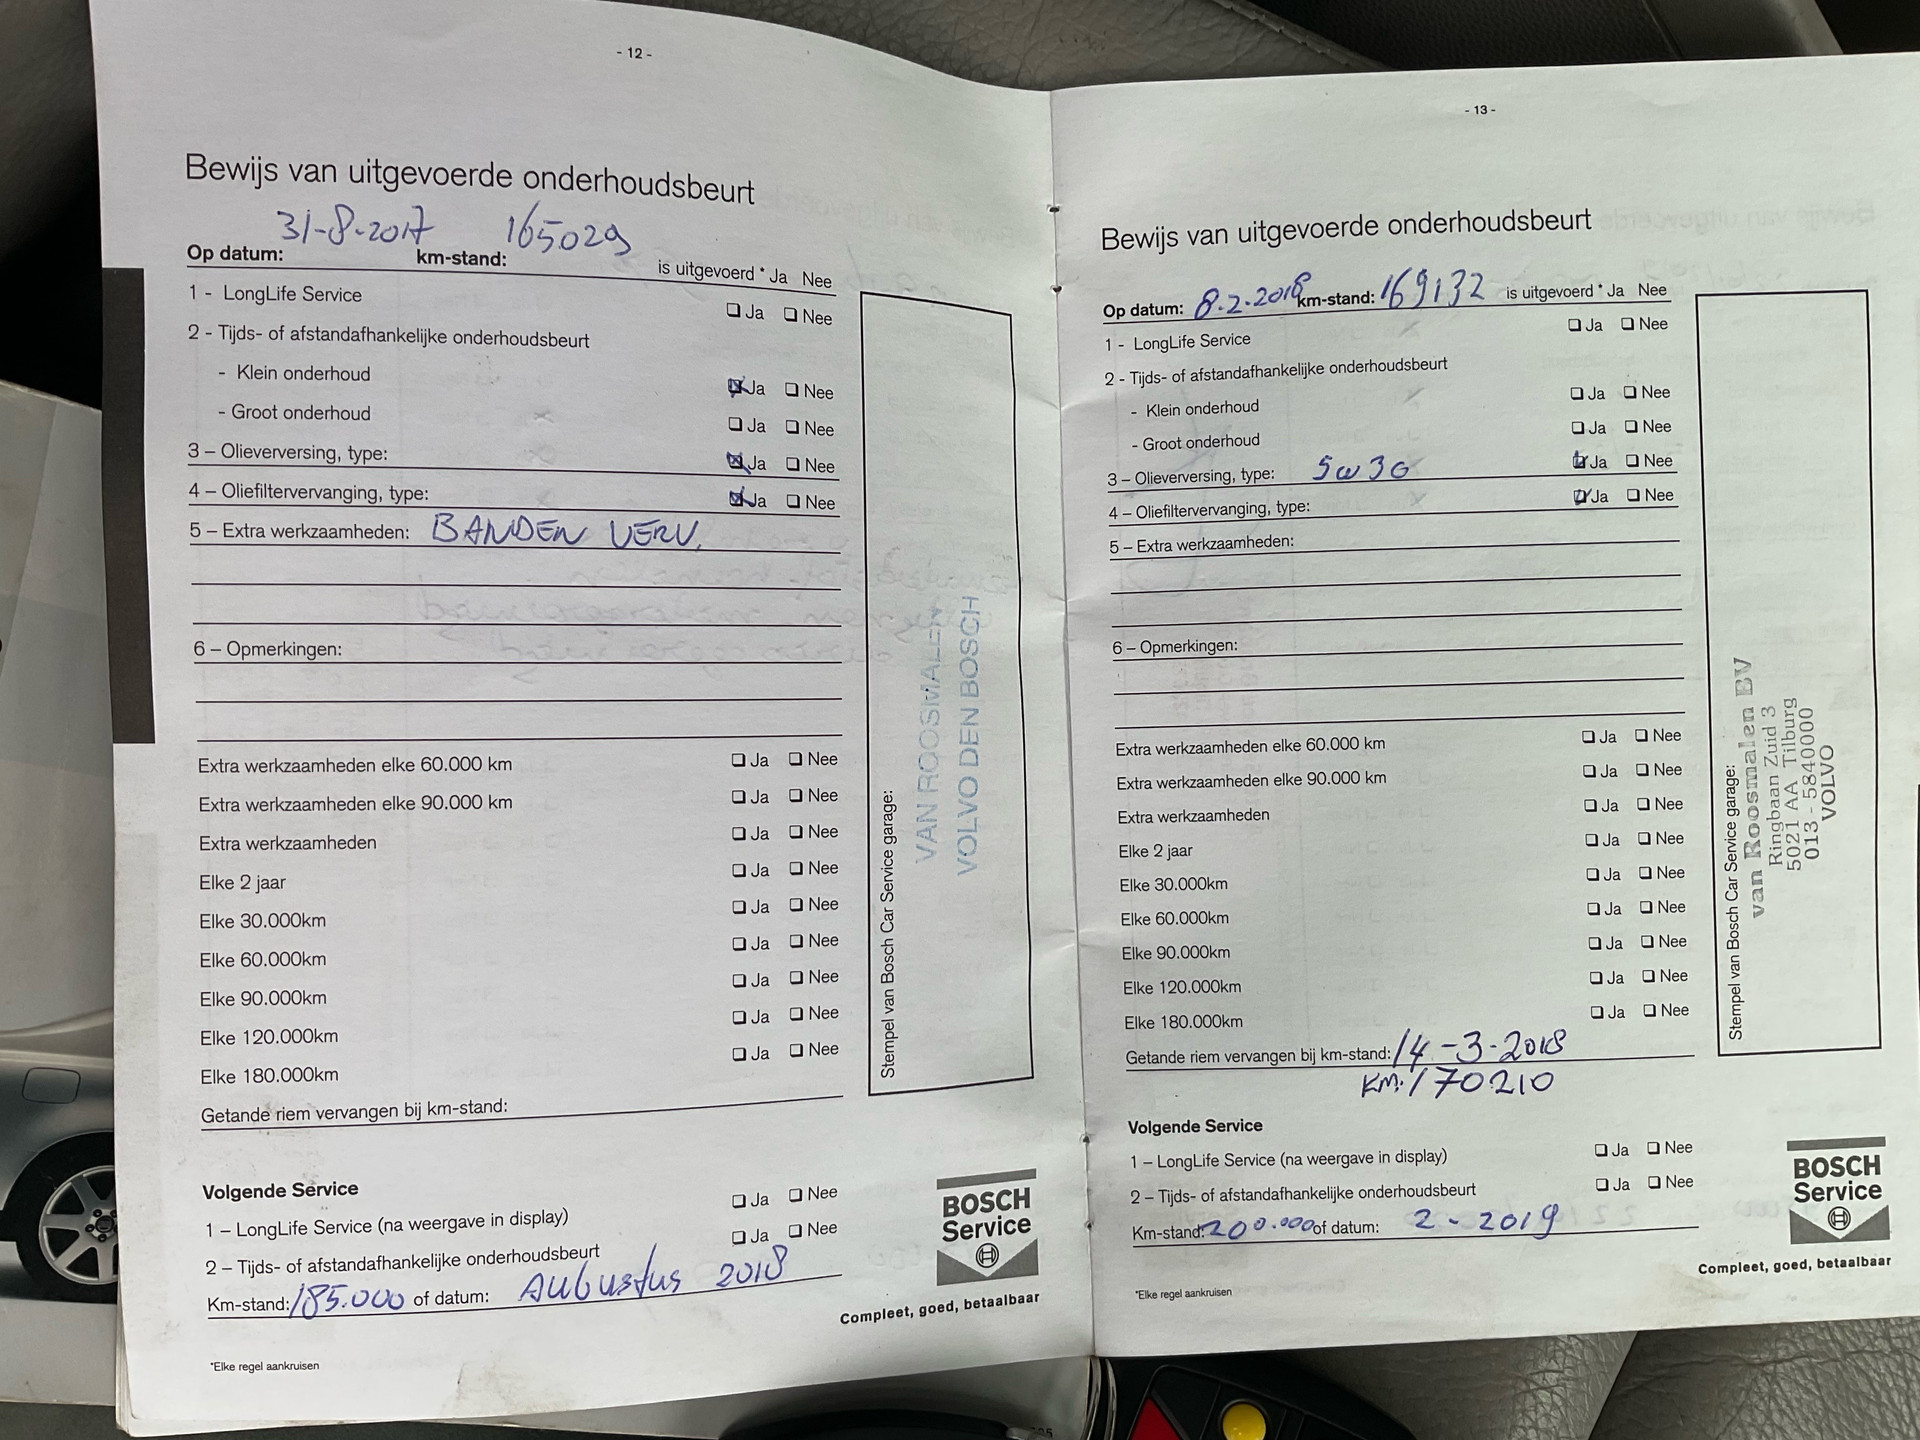 - 12 -
Bewijs van uitgevoerde onderhoudsbeurt
Op datum: 31-8-2017 km-stand: 165029 is uitgevoerd * Ja Nee
1 - LongLife Service ❏ Ja ❏ Nee
2 - Tijds- of afstandafhankelijke onderhoudsbeurt
- Klein onderhoud ☒ Ja ❏ Nee
- Groot onderhoud ❏ Ja ❏ Nee
3 – Olieverversing, type: ☒ Ja ❏ Nee
4 – Oliefiltervervanging, type: ☒ Ja ❏ Nee
5 – Extra werkzaamheden: BANDEN VERV.
6 – Opmerkingen:
Extra werkzaamheden elke 60.000 km ❏ Ja ❏ Nee
Extra werkzaamheden elke 90.000 km ❏ Ja ❏ Nee
Extra werkzaamheden ❏ Ja ❏ Nee
Elke 2 jaar ❏ Ja ❏ Nee
Elke 30.000km ❏ Ja ❏ Nee
Elke 60.000km ❏ Ja ❏ Nee
Elke 90.000km ❏ Ja ❏ Nee
Elke 120.000km ❏ Ja ❏ Nee
Elke 180.000km ❏ Ja ❏ Nee
Getande riem vervangen bij km-stand:
Stempel van Bosch Car Service garage:
VAN ROOSMALEN
VOLVO DEN BOSCH
Volgende Service
1 – LongLife Service (na weergave in display) ❏ Ja ❏ Nee
2 – Tijds- of afstandafhankelijke onderhoudsbeurt ❏ Ja ❏ Nee
Km-stand: 185.000 of datum: AUGUSTUS 2018
BOSCH
Service
Compleet, goed, betaalbaar
*Elke regel aankruisen
- 13 -
Bewijs van uitgevoerde onderhoudsbeurt
Op datum: 8-2-2018 km-stand: 169132 is uitgevoerd * Ja Nee
1 - LongLife Service ❏ Ja ❏ Nee
2 - Tijds- of afstandafhankelijke onderhoudsbeurt
- Klein onderhoud ❏ Ja ❏ Nee
- Groot onderhoud ❏ Ja ❏ Nee
3 – Olieverversing, type: 5w30 ☑ Ja ❏ Nee
4 – Oliefiltervervanging, type: ☑ Ja ❏ Nee
5 – Extra werkzaamheden:
6 – Opmerkingen:
Extra werkzaamheden elke 60.000 km ❏ Ja ❏ Nee
Extra werkzaamheden elke 90.000 km ❏ Ja ❏ Nee
Extra werkzaamheden ❏ Ja ❏ Nee
Elke 2 jaar ❏ Ja ❏ Nee
Elke 30.000km ❏ Ja ❏ Nee
Elke 60.000km ❏ Ja ❏ Nee
Elke 90.000km ❏ Ja ❏ Nee
Elke 120.000km ❏ Ja ❏ Nee
Elke 180.000km ❏ Ja ❏ Nee
Getande riem vervangen bij km-stand: 14-3-2018
KM: 170210
Stempel van Bosch Car Service garage:
van Roosmalen BV
Ringbaan Zuid 3
5021 AA Tilburg
013 - 5840000
VOLVO
Volgende Service
1 – LongLife Service (na weergave in display) ❏ Ja ❏ Nee
2 – Tijds- of afstandafhankelijke onderhoudsbeurt ❏ Ja ❏ Nee
Km-stand: 200.000 of datum: 2-2019
BOSCH
Service
Compleet, goed, betaalbaar
*Elke regel aankruisen